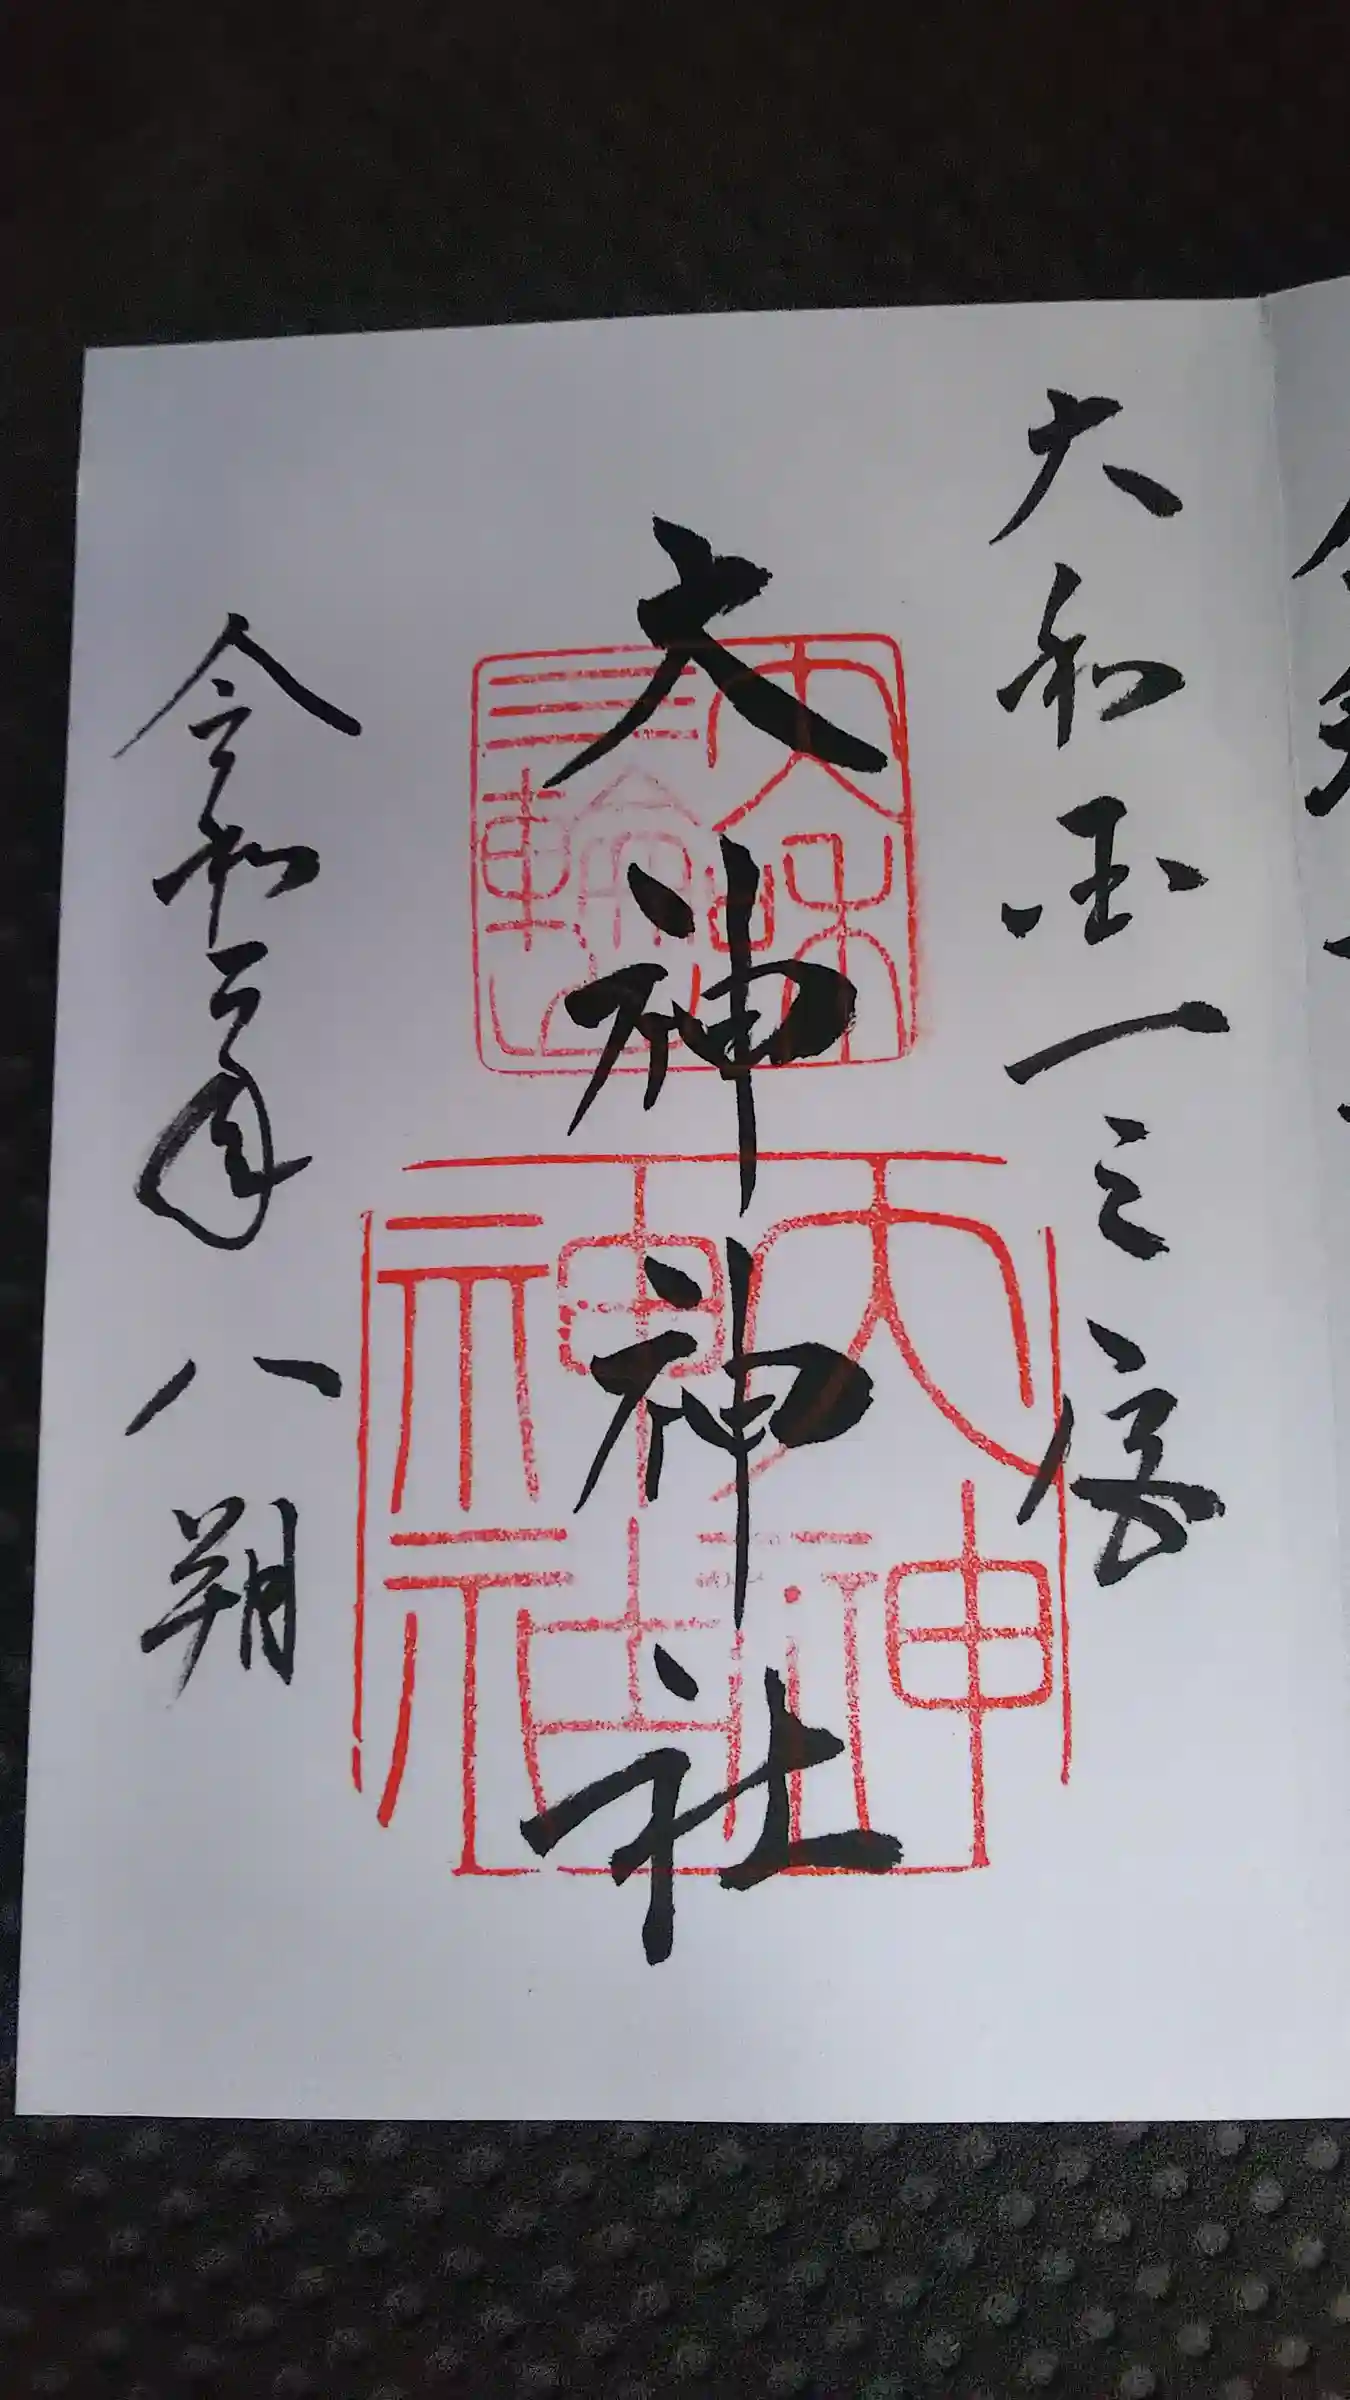 大和国一之宮
大神神社
令和二年
八朔
大和国
三輪山
大神
神社